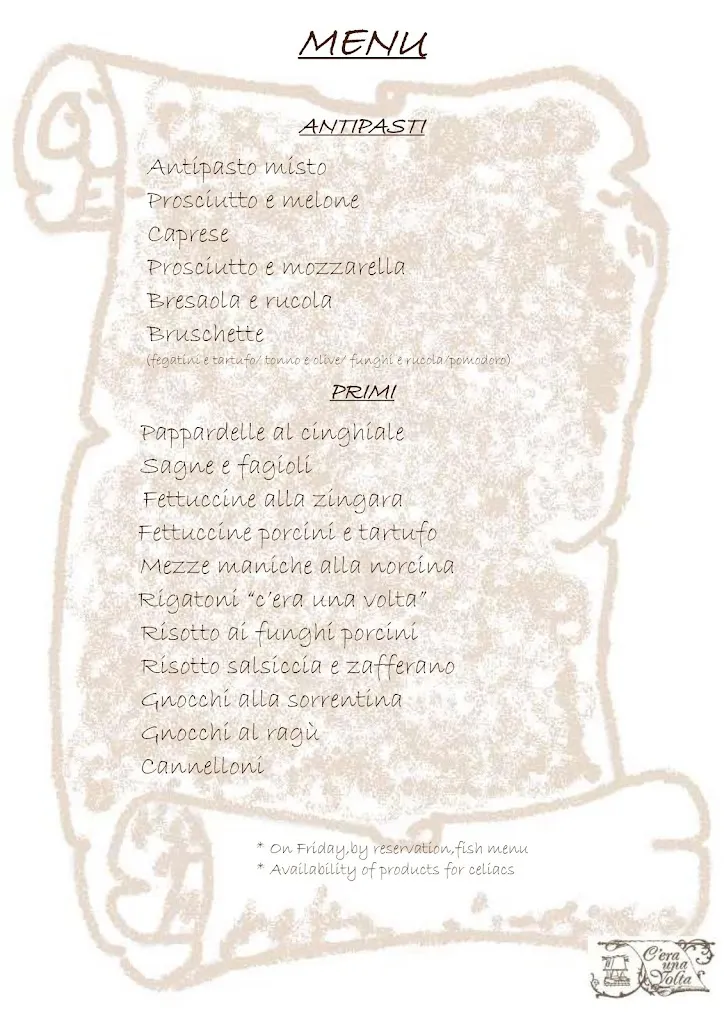 MENU
ANTIPASTI
Antipasto misto
Prosciutto e melone
Caprese
Prosciutto e mozzarella
Bresaola e rucola
Bruschette
(fegatini e tartufo/ tonno e olive/ funghi e rucola/pomodoro)
PRIMI
Pappardelle al cinghiale
Sagne e fagioli
Fettuccine alla zingara
Fettuccine porcini e tartufo
Mezze maniche alla norcina
Rigatoni “c’era una volta”
Risotto ai funghi porcini
Risotto salsiccia e zafferano
Gnocchi alla sorrentina
Gnocchi al ragù
Cannelloni
* On Friday,by reservation,fish menu
* Availability of products for celiacs
C'era
una
Volta